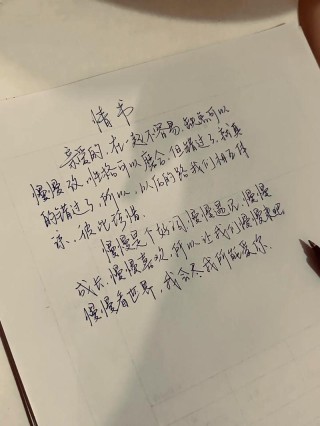 情书
亲爱的，在一起不容易，缺点可以
慢慢改，性格可以磨合，但错过了，就真
的错过了，所以，以后的路我们相互体
谅、彼此珍惜。
慢慢是个好词，慢慢遇见，慢慢
成长，慢慢喜欢，所以让我们慢慢来吧
慢慢看世界，我会尽我所能爱你